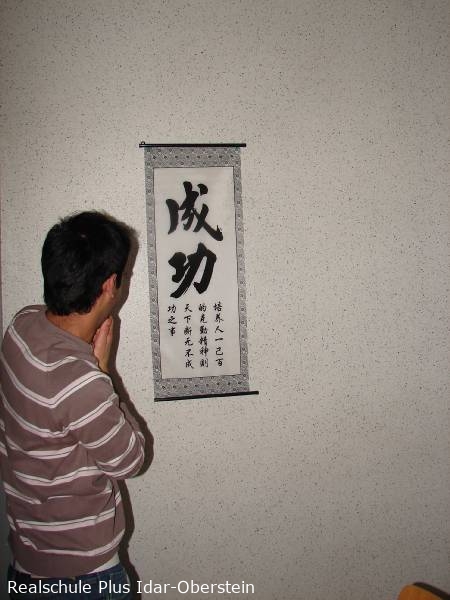 成功
培养人一己百
的克勤精神则
天下断无不成
功之事
Realschule Plus Idar-Oberstein